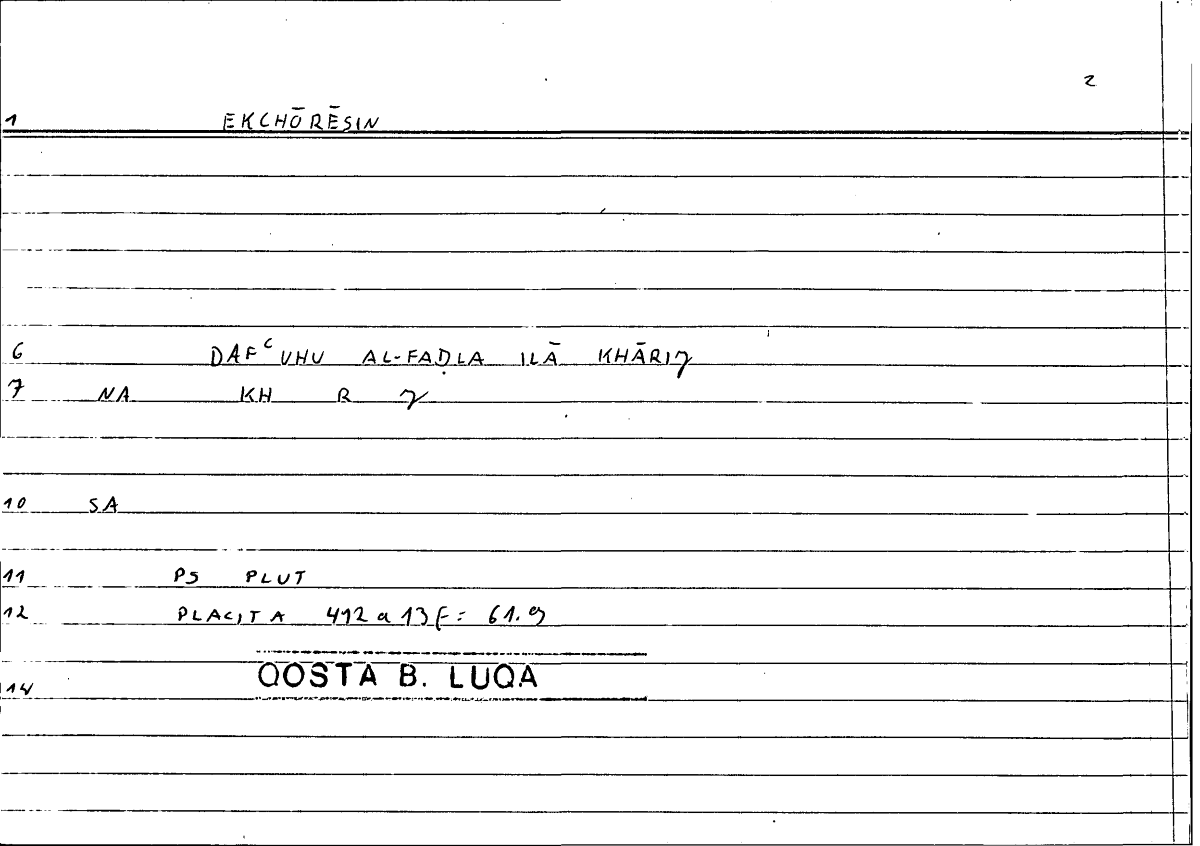 2
1 EKCHŌRĒSIN
6 DAFᶜUHU AL-FAḌLA ILĀ KHĀRIȷ
7 NA KH R ȷ
10 SA
11 PS PLUT
12 PLACITA 412 a 13 f = 61.9
14 QOSTA B. LUQA